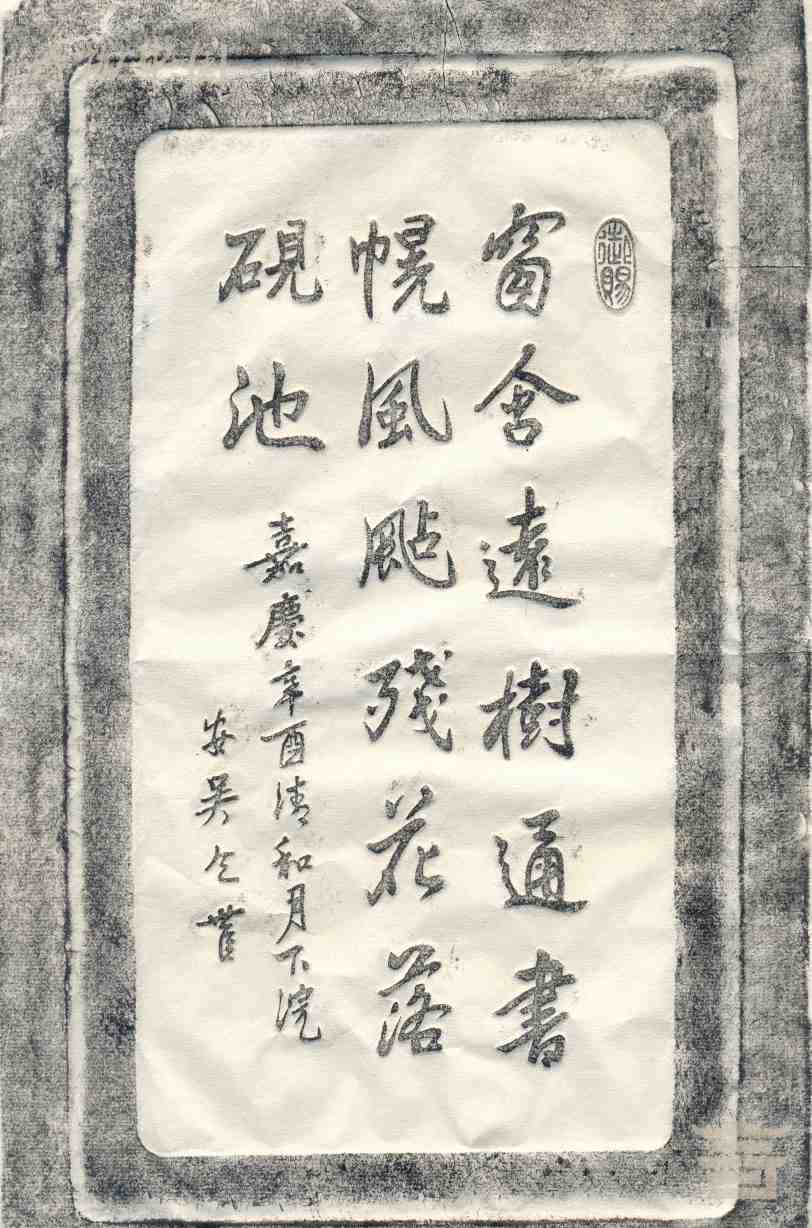 御賜
窗含遠樹通書
幌風颭殘花落
硯池
嘉慶辛酉清和月下浣
安吳